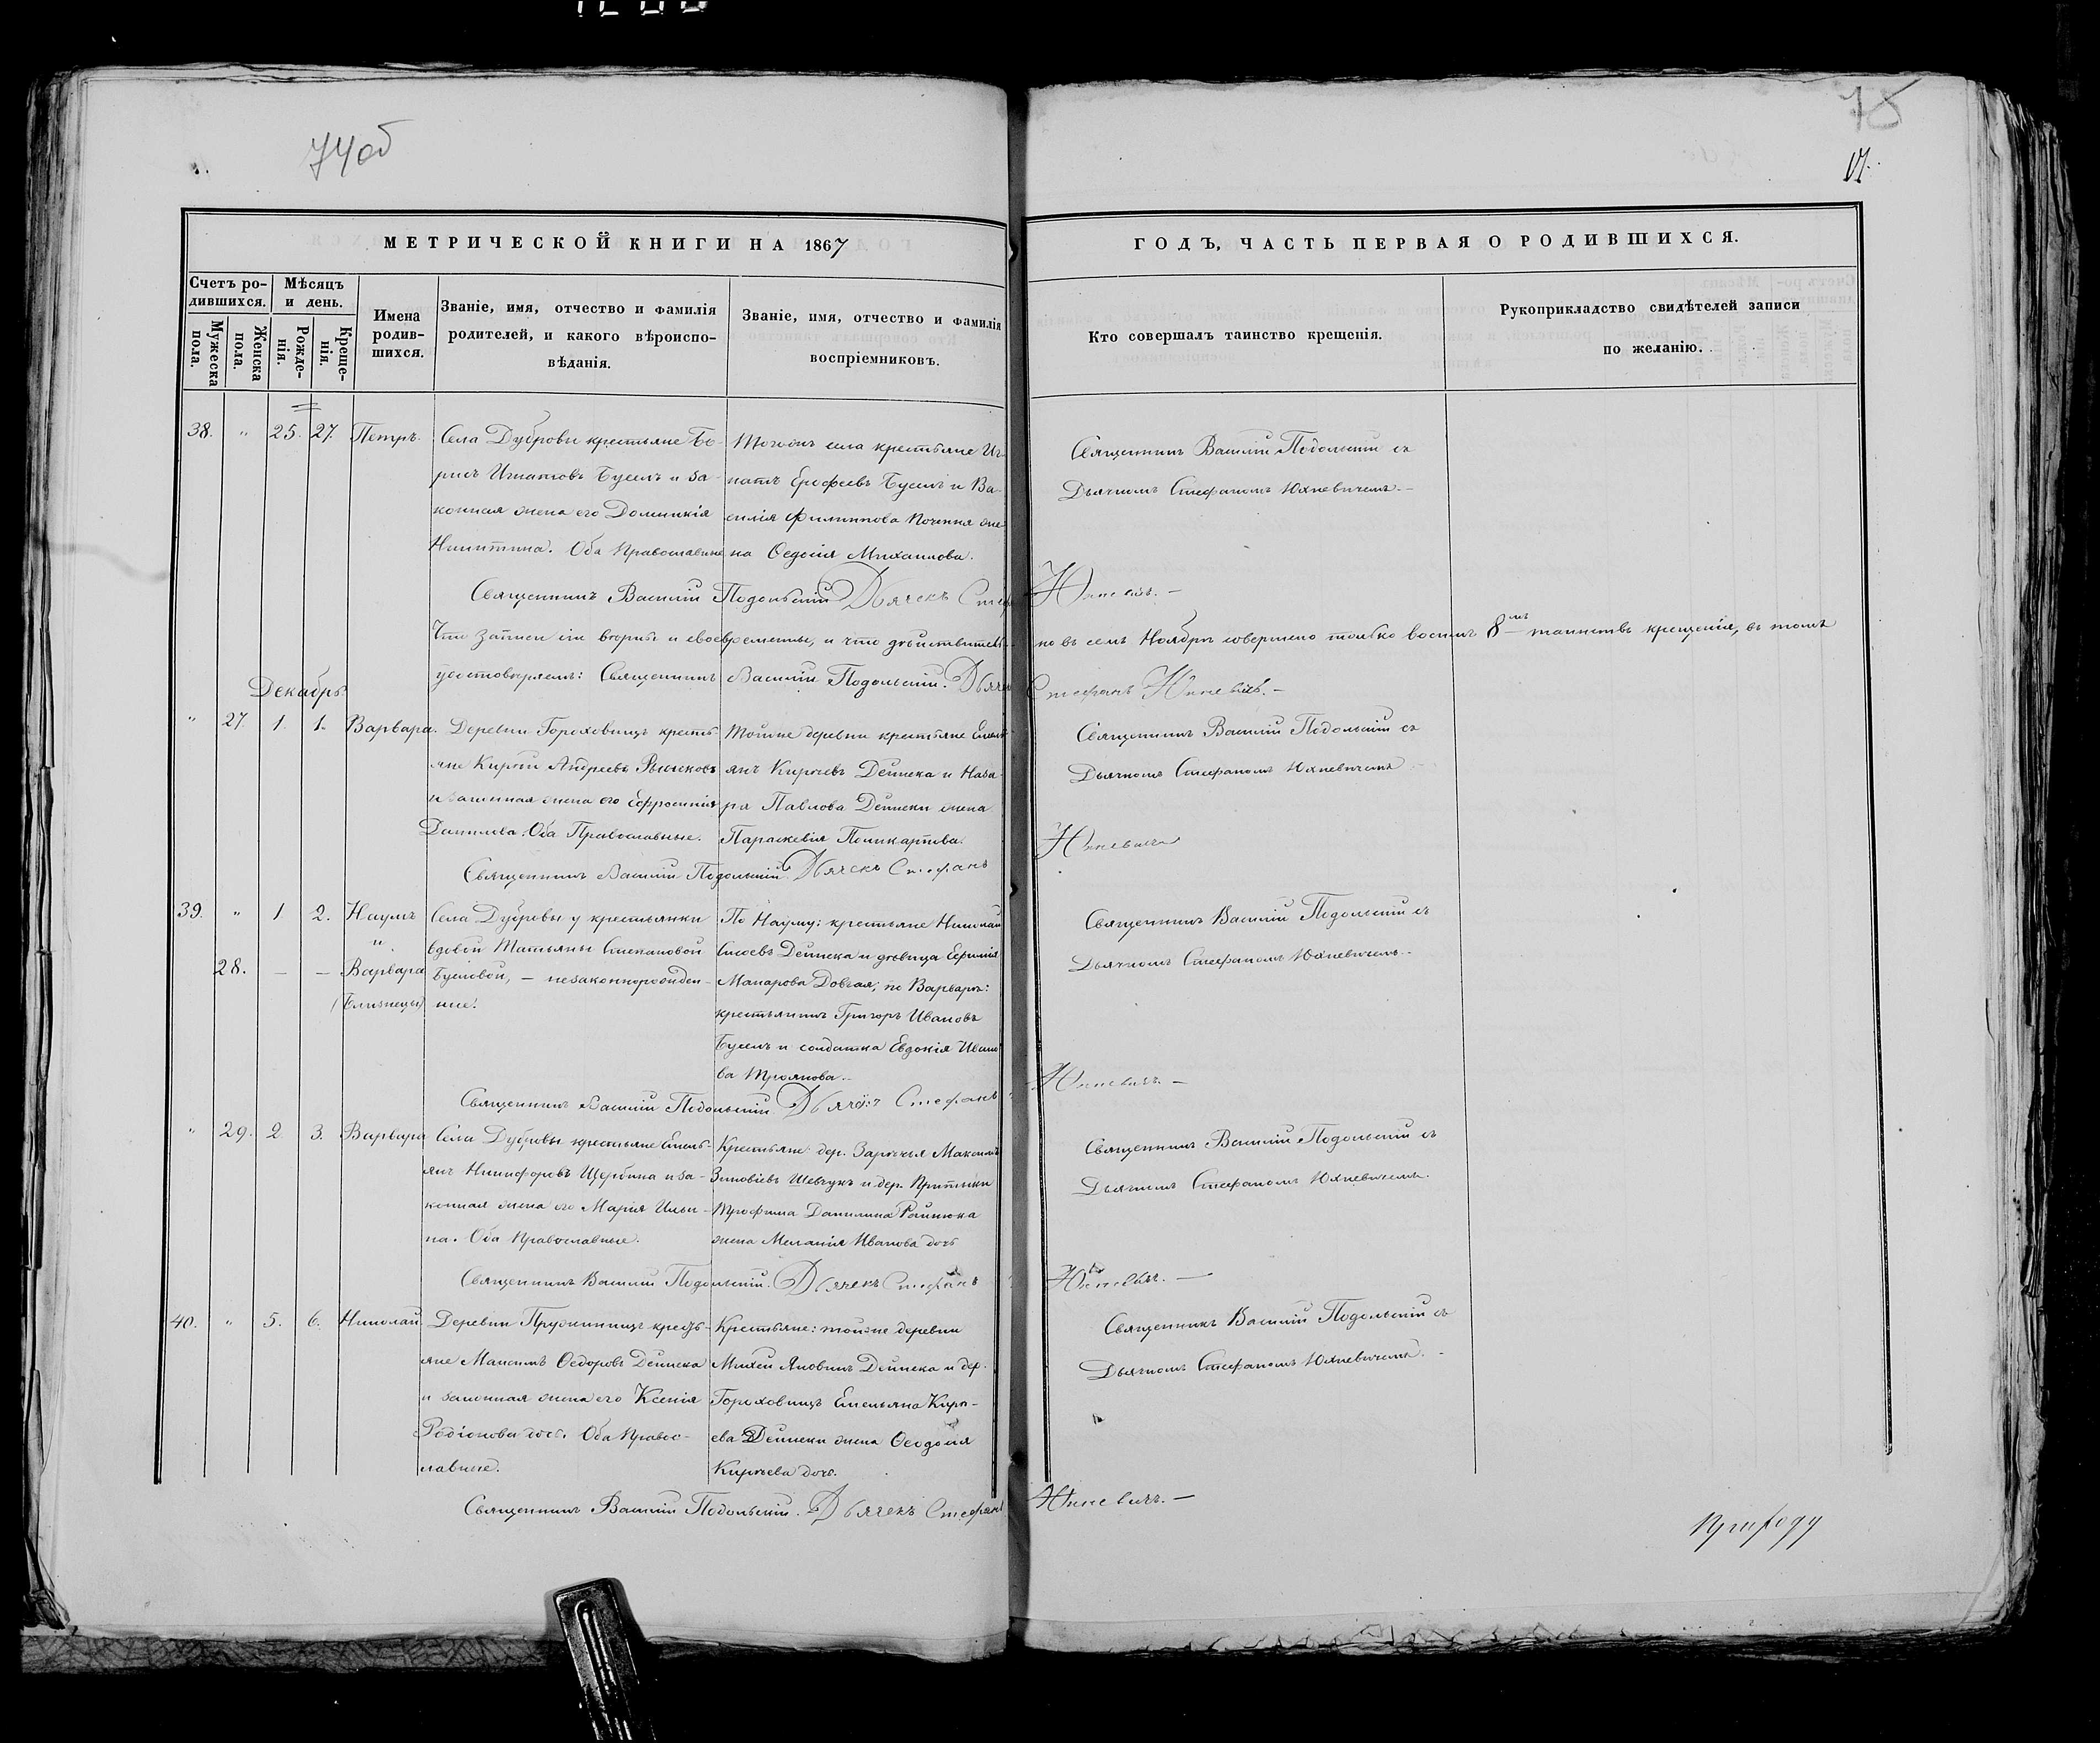 74об
75
МЕТРИЧЕСКОЙ КНИГИ НА 1867
ГОДЪ, ЧАСТЬ ПЕРВАЯ О РОДИВШИХСЯ.
Счетъ ро-
дившихся.
Мужеска
пола.
Женска
пола.
Мѣсяцъ
и день.
Рожде-
нія.
Креще-
нія.
Имена
родив-
шихся.
Званіе, имя, отчество и фамилія
родителей, и какого вѣроиспо-
вѣданія.
Званіе, имя, отчество и фамилія
воспріемниковъ.
Кто совершалъ таинство крещенія.
Рукоприкладство свидѣтелей записи
по желанію.
38. " 25. 27. Петръ.
Села Дубровы крестьяне Бо-
рисъ Игнатовъ Буселъ и за-
конная жена его Домникія
Никитина. Оба Православные
Тогожъ села крестьяне Иг-
натъ Ерофеевъ Буселъ и Ва-
силія Филиппова жe-
на Ѳедосія Михаилова.
Священникъ Василій Подольскій съ
Дьячкомъ Стефаномъ Юхневичемъ.
Священникъ Василій Подольскій Дьячекъ Стеф Юхневичъ.
Что записи сіи вѣрны и своевременны, и что дѣйствительно въ семъ Ноябрѣ совершено только восемь 8 таинствъ крещенія, въ томъ
удостовѣряемъ: Священникъ Василій Подольскій. Дьячекъ Стефанъ Юхневичъ.
Декабрь
" 27. 1. 1. Варвара.
Деревни Гороховищъ кресть-
яне Кирѣй Андреевъ
и законная жена его Ефросинія
Данилова. Оба Православные.
Тойже деревни крестьяне Емель-
янъ Кирѣевъ Дейнека и Наза-
ра Павлова Дейнеки жена
Параскевія Поликарпова.
Священникъ Василій Подольскій съ
Дьячкомъ Стефаномъ Юхневичемъ
Священникъ Василій Подольскій Дьячекъ Стефанъ Юхневичъ
39. " 1. 2. Наумъ
и
28. — — Варвара
(Близнецы)
Села Дубровы у крестьянки
вдовы Татьяны Степановой
Бусловой, — незаконнорожден-
ные.
По Науму: крестьяне Николай
Дейнека и дѣвица Евфимія
Макарова Довгая; по Варварѣ:
крестьянинъ Григорь Ивановъ
Буселъ и солдатка Евдокія Ивано-
ва Троянова.
Священникъ Василій Подольскій съ
Дьячкомъ Стефаномъ Юхневичемъ.
Священникъ Василій Подольскій Дьячекъ Стефанъ Юхневичъ.
" 29. 2. 3. Варвара
Села Дубровы крестьяне Емель-
янъ Никифоровъ Щербина и за-
конная жена его Марія Ильи-
на. Оба Православные.
Крестьяне: дер. Зарѣчья Максимъ
Зиновіевъ Шевчукъ и дер. Притыки
Трофима Данилина Райнюка
жена Меланія Иванова дочь
Священникъ Василій Подольскій съ
Дьячкомъ Стефаномъ Юхневичемъ.
Священникъ Василій Подольскій. Дьячекъ Стефанъ Юхневичъ.
40. " 5. 6. Николай.
Деревни Пружинищъ кресть-
яне Максимъ Ѳедоровъ Дейнека
и законная жена его Ксенія
Родіонова дочь. Оба Правос-
лавные.
Крестьяне: тойже деревни
Михей Яковинъ Дейнека и дер.
Гороховищъ Емельяна Кирѣ-
ева Дейнеки жена Ѳеодосія
Кирѣева дочь.
Священникъ Василій Подольскій съ
Дьячкомъ Стефаномъ Юхневичемъ.
Священникъ Василій Подольскій. Дьячекъ Стефанъ Юхневичъ.